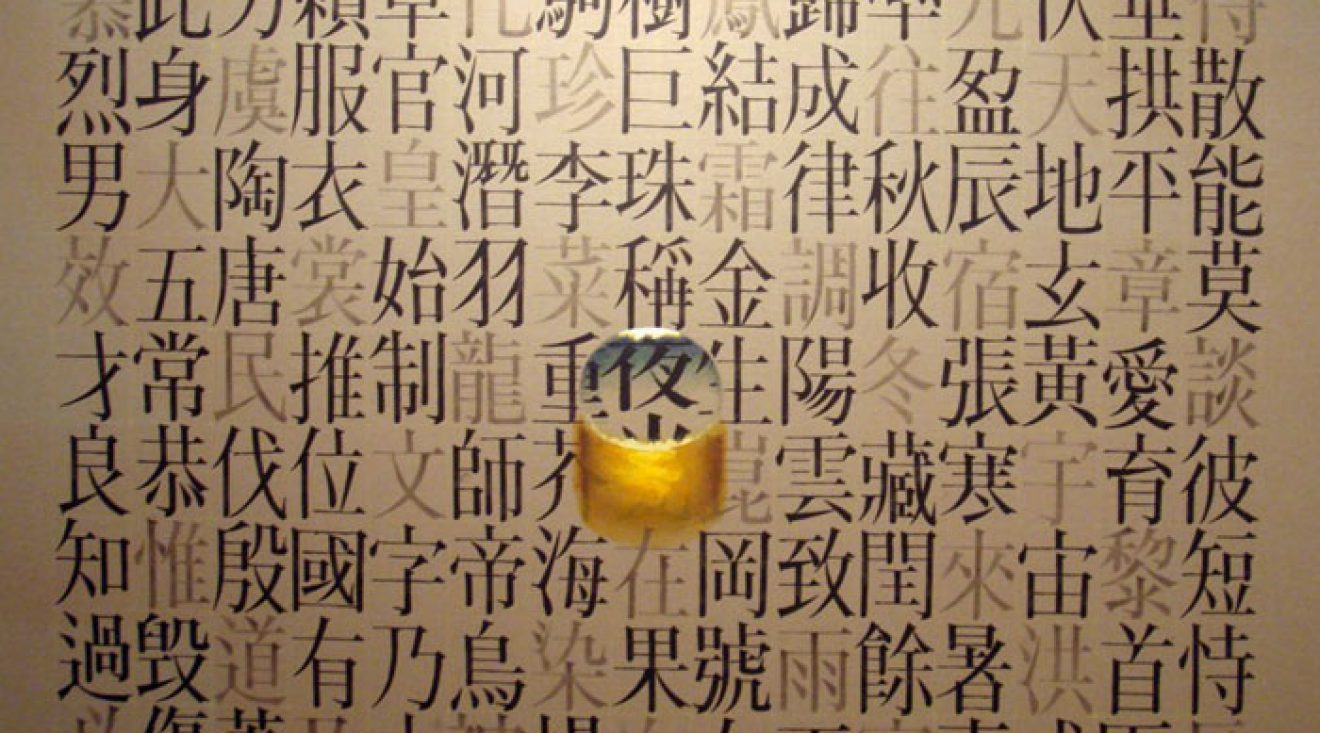 散能莫談彼短恃
垂拱平章愛育黎首
伏天地玄黃宇宙洪
盈辰宿張寒來暑
率往秋收冬藏閏餘
歸成律調陽雲致雨
鳳結霜金生崑岡號
樹巨珠稱夜光在果
駒珍李菜重芥海染
化河潛羽龍師帝鳥
草官皇始制文字乃
賴服衣裳推位國有
虞陶唐民伐殷道
此身大五常恭惟毀傷
慕烈男效才良知過